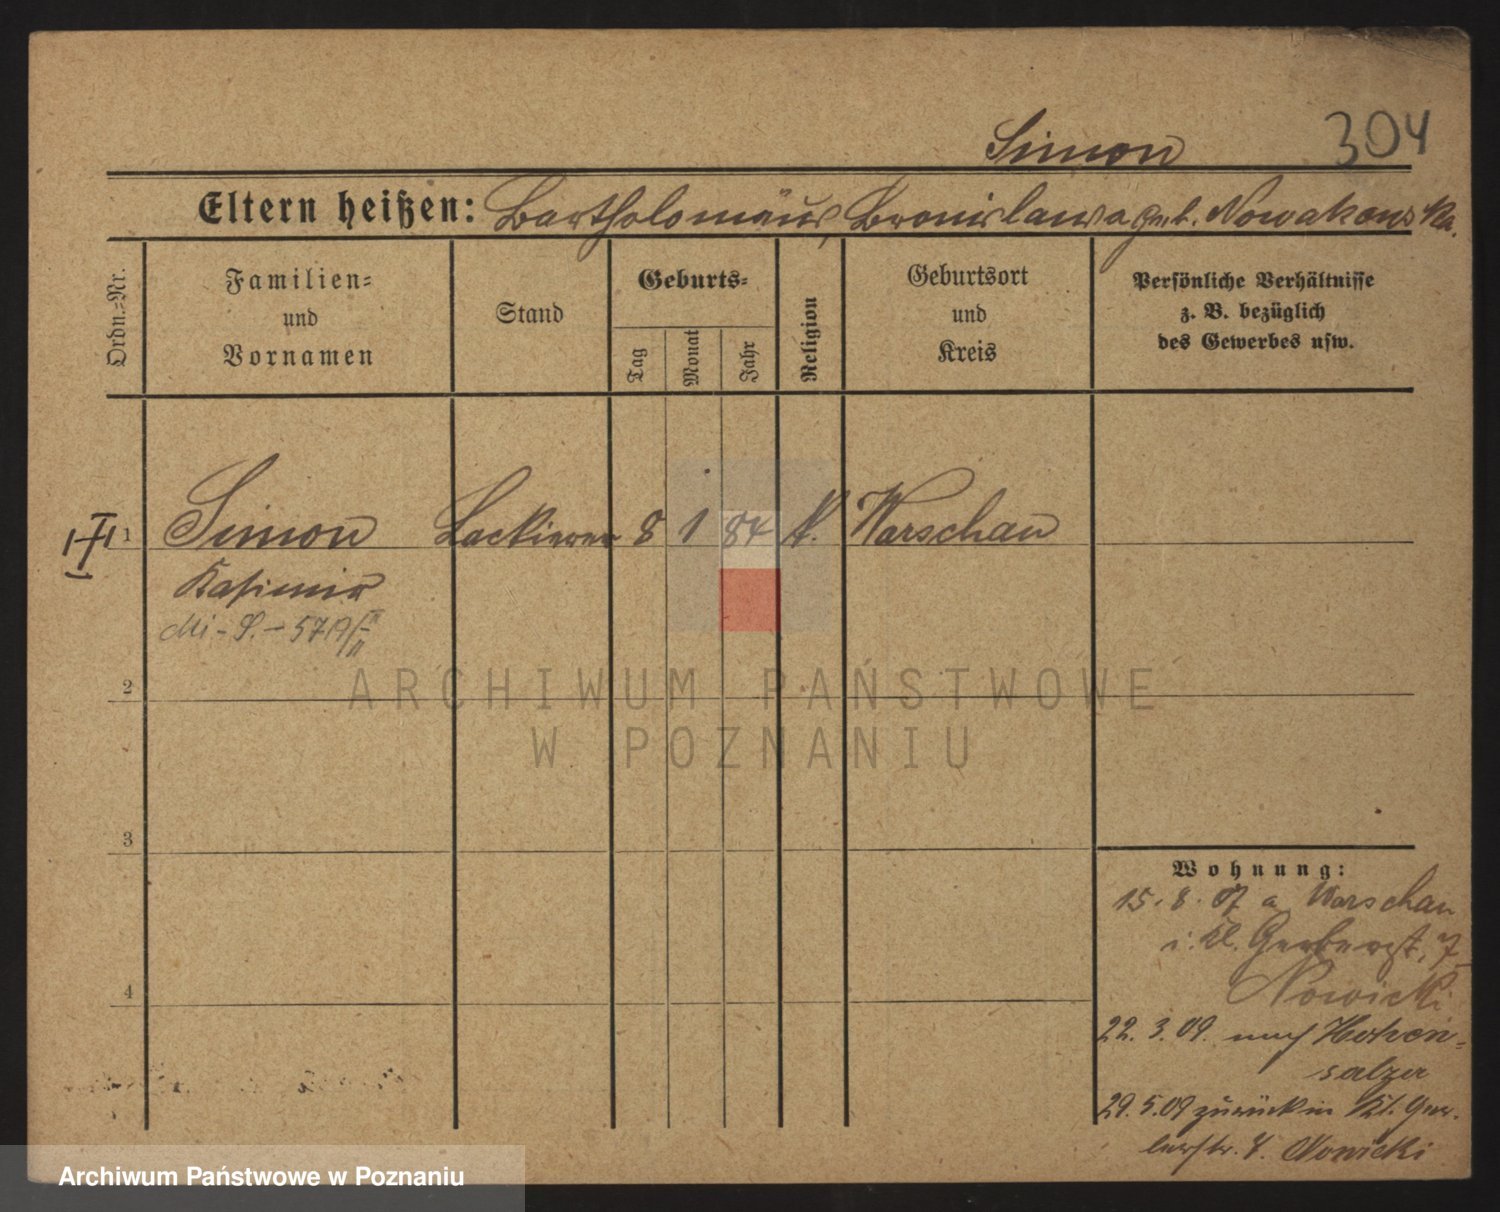 Simon 304
Eltern heißen: Bartholomäus, Bronislawa geb. Nowakowska.
Ordn.-Nr.
Familien-
und
Vornamen
Stand
Geburts-
Tag
Monat
Jahr
Religion
Geburtsort
und
Kreis
Persönliche Verhältnisse
z. B. bezüglich
des Gewerbes usw.
1 Simon Lackierer 8 1 84 k. Warschau
Kasimir
Mi - S. - 5719/II
2
ARCHIWUM PAŃSTWOWE
W POZNANIU
3
Wohnung:
15. 8. 07 a Warschau
i. Kl. Gerberst. 7
Nowicki
4
22. 3. 09. nach Hohen-
salza
29. 5. 09 zurück in Kl. Ger-
berstr. 7. Nowicki
Archiwum Państwowe w Poznaniu